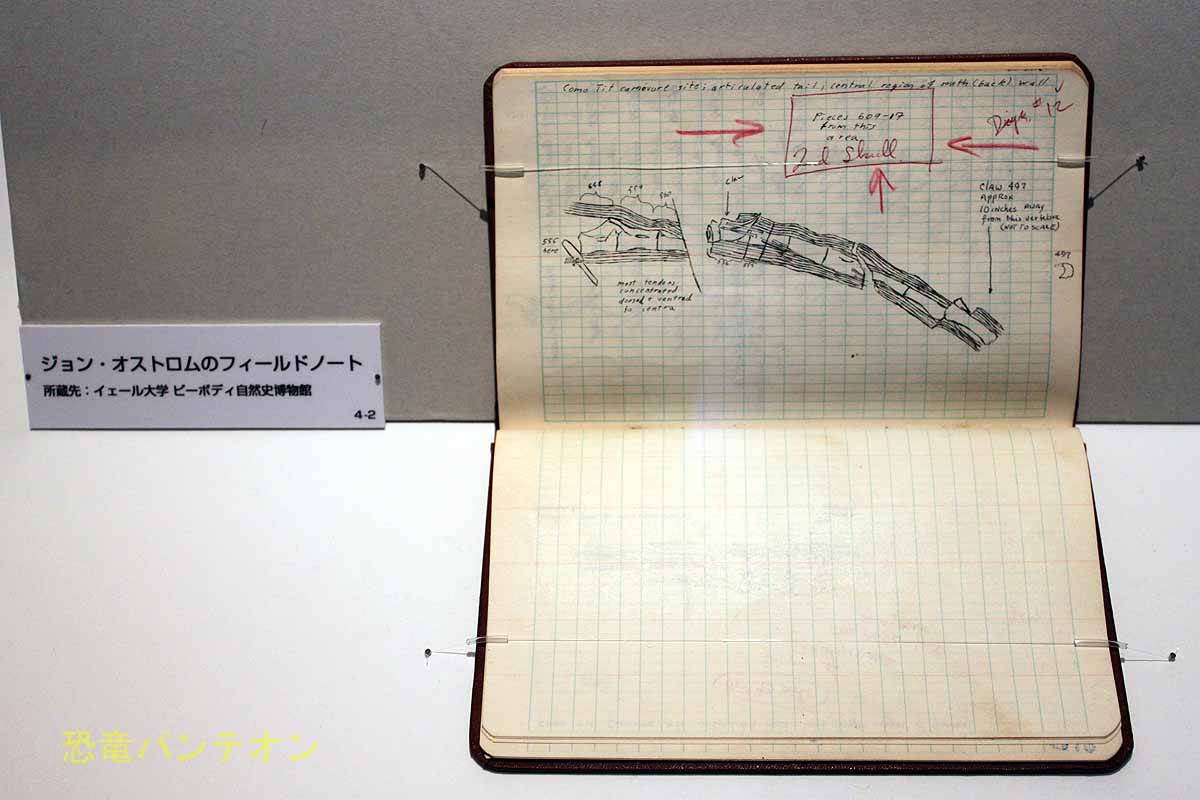 Como Tit carnivore site; articulated tail; central region of north (back) wall
Pieces 609-17
from this
area
2nd Skull
# 12
claw
555
here
most tendons
concentrated
dorsal + ventral
to centra
CLAW 497
APPROX
10 inches AWAY
from this vertebra
(NOT TO SCALE)
497
ジョン・オストロムのフィールドノート
所蔵先：イェール大学 ピーボディ自然史博物館
4-2
恐竜パンテオン